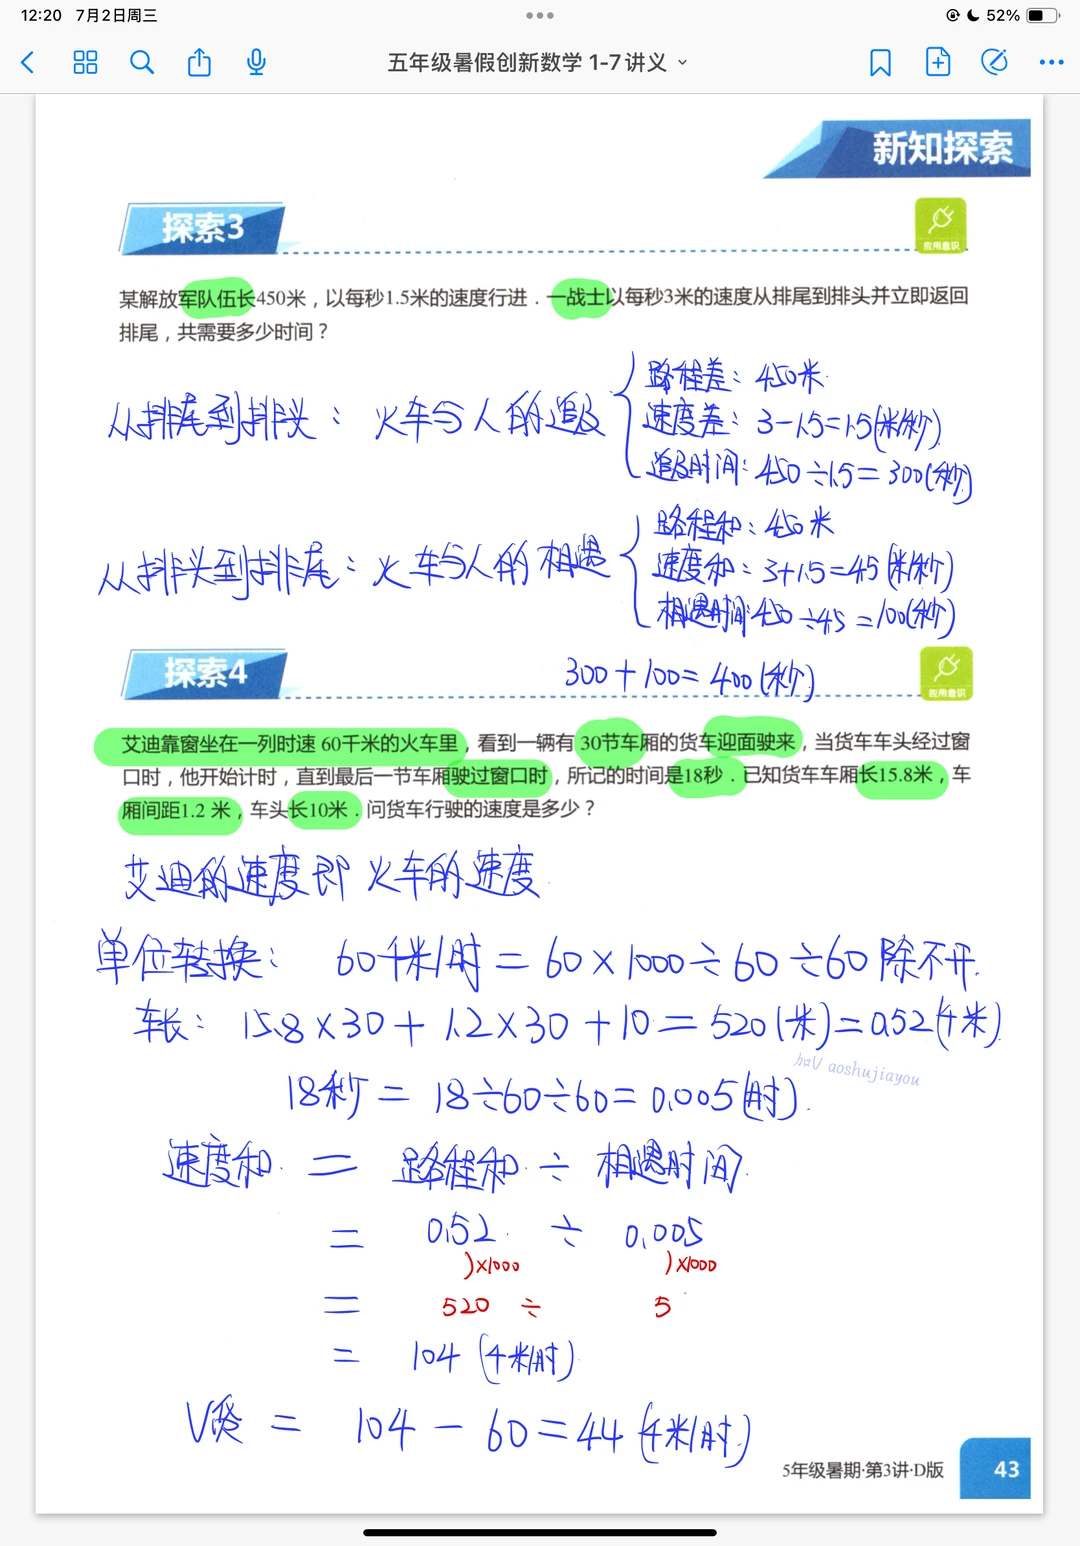 12:20 7月2日周三
52%
五年级暑假创新数学 1-7 讲义
新知探索
探索3
应用意识
某解放军队伍长450米，以每秒1.5米的速度行进．一战士以每秒3米的速度从排尾到排头并立即返回
排尾，共需要多少时间？
从排尾到排头：火车与人的追及
路程差：450米
速度差：3-1.5=1.5(米/秒)
追及时间：450÷1.5=300(秒)
从排头到排尾：火车与人的相遇
路程和：450米
速度和：3+1.5=4.5(米/秒)
相遇时间：450÷4.5=100(秒)
300+100=400(秒)
探索4
应用意识
艾迪靠窗坐在一列时速 60千米的火车里，看到一辆有 30节车厢的货车迎面驶来，当货车车头经过窗
口时，他开始计时，直到最后一节车厢驶过窗口时，所记的时间是18秒．已知货车车厢长15.8米，车
厢间距1.2 米，车头长10米．问货车行驶的速度是多少？
艾迪的速度即火车的速度
单位转换：60千米/时=60×1000÷60÷60除不开.
车长：15.8×30+1.2×30+10=520(米)=0.52(千米)
haV aoshujiayou
18秒=18÷60÷60=0.005(时).
速度和=路程和÷相遇时间.
=0.52÷0.005
)×1000 )×1000
=520÷5
=104(千米/时)
V货=104-60=44(千米/时)
5年级暑期·第3讲·D版
43